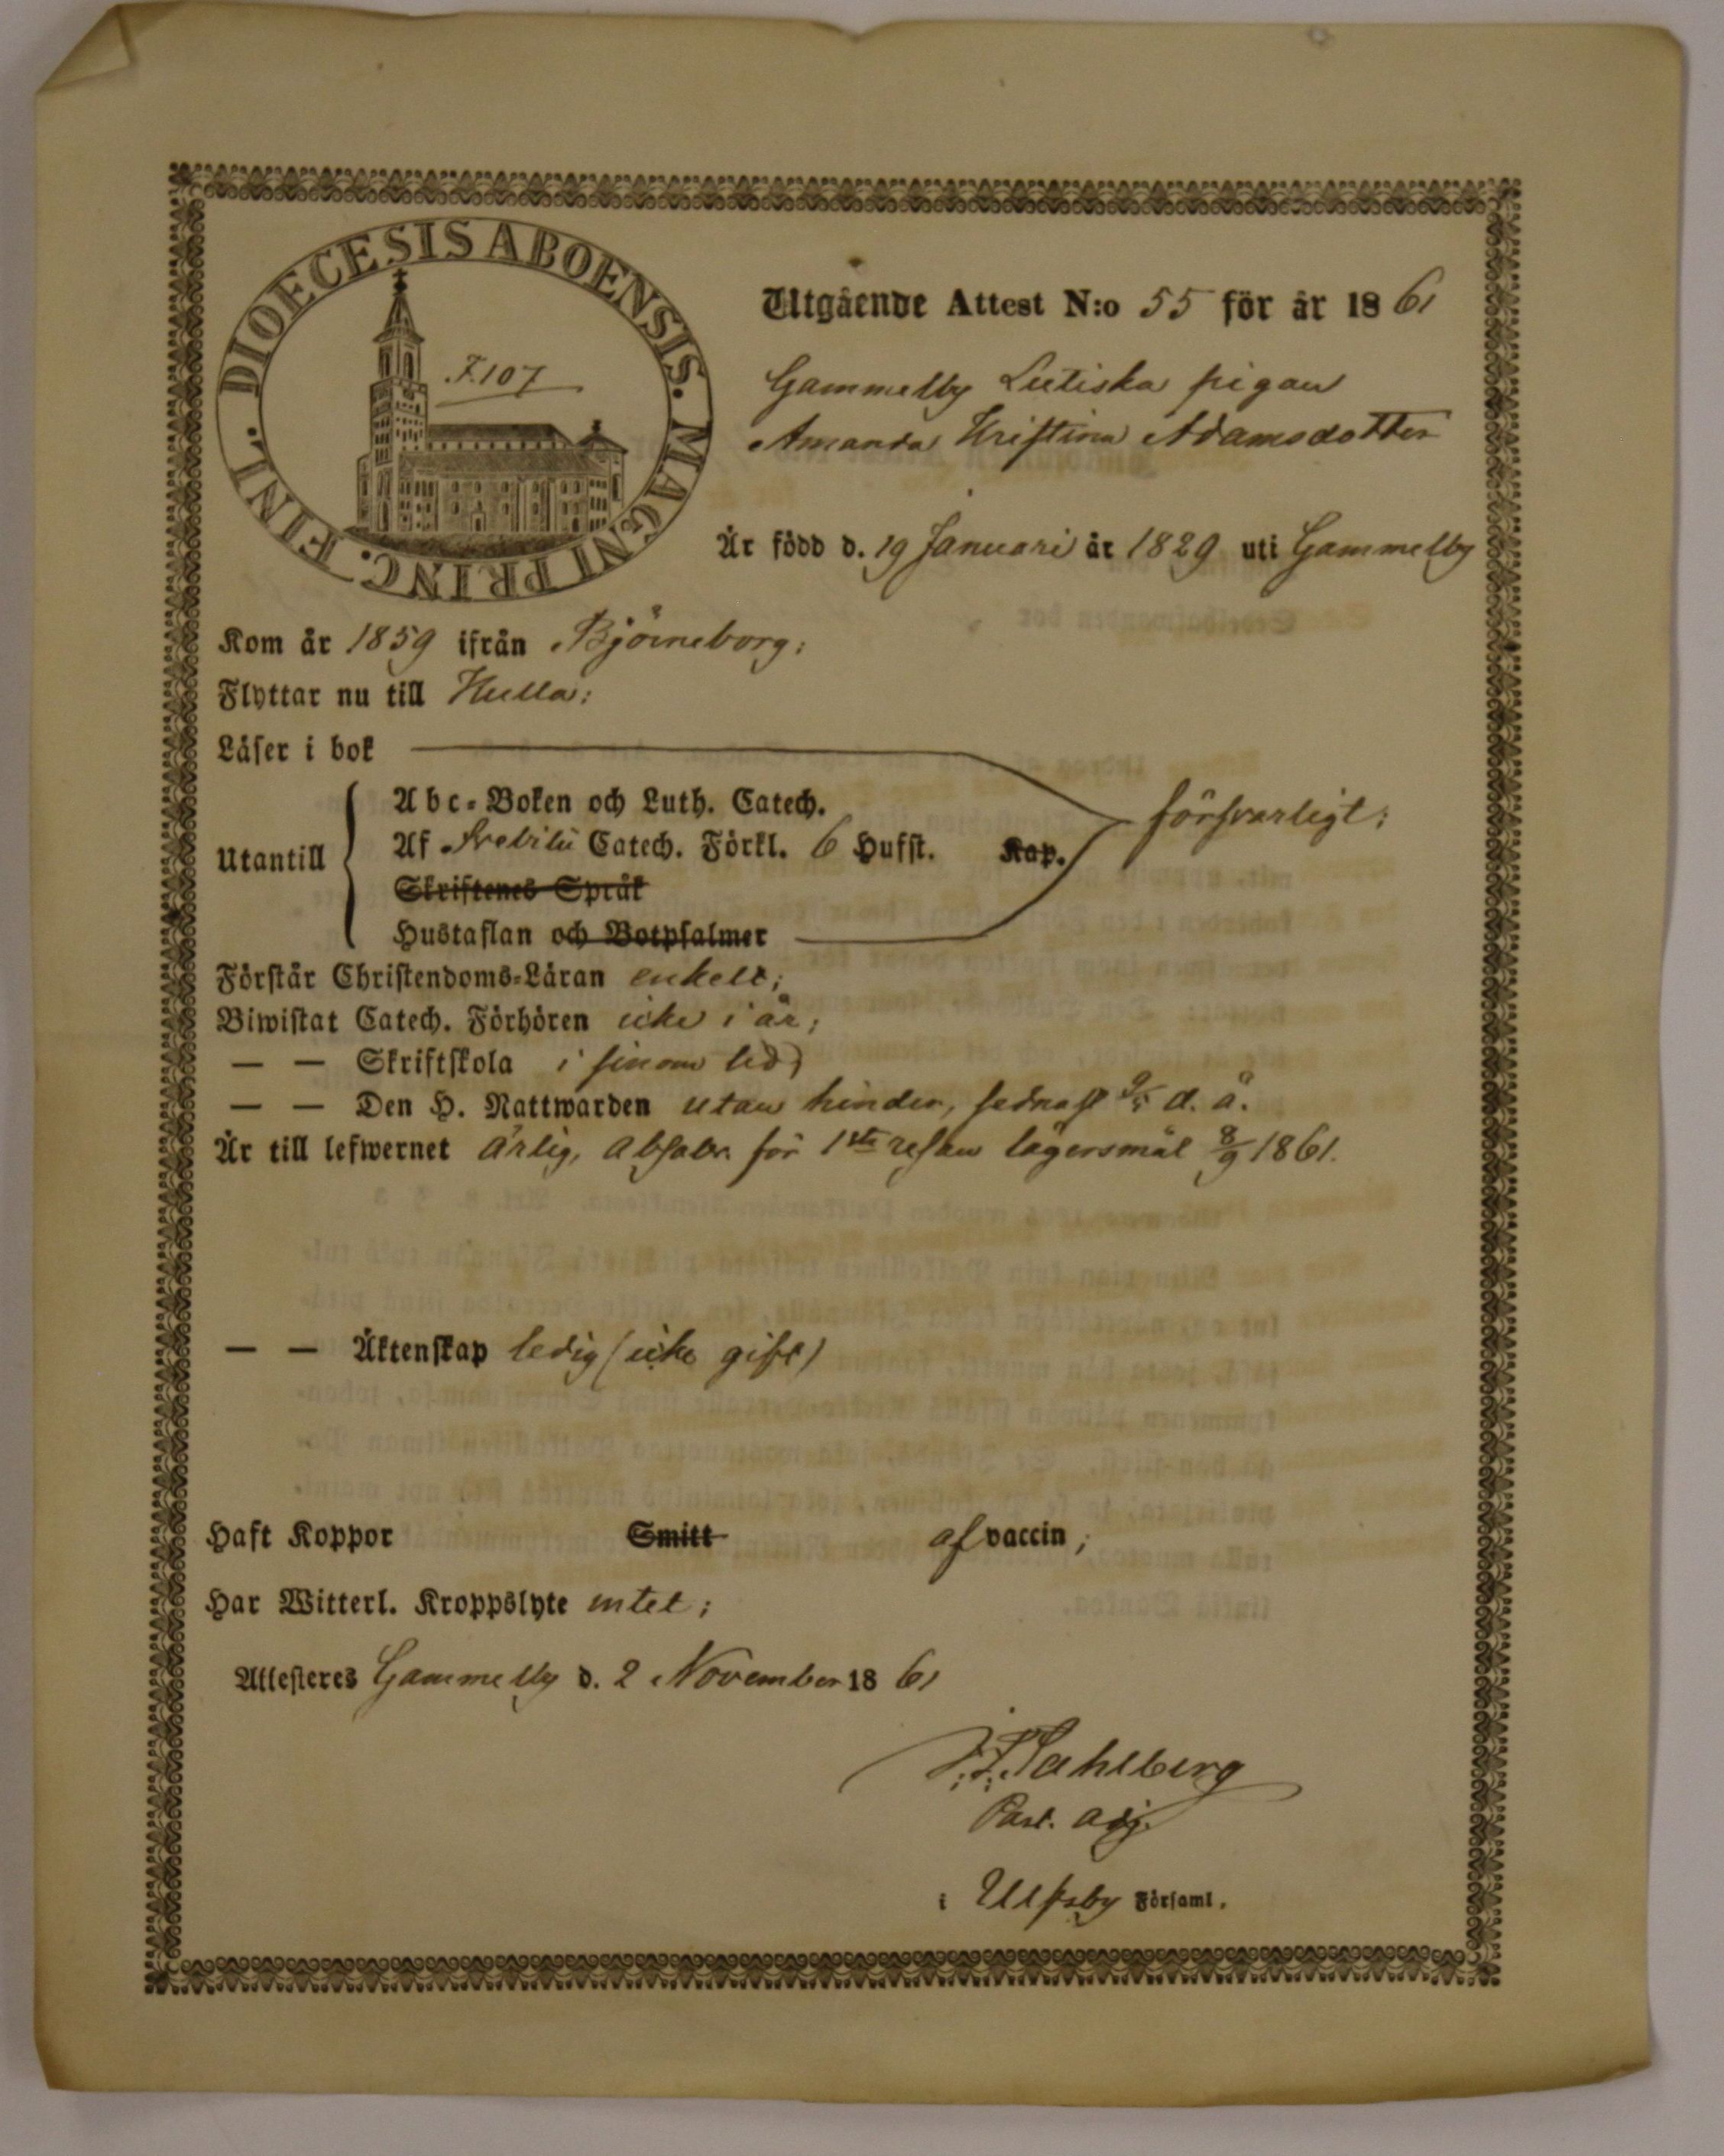 DIOECESIS ABOENSIS. MAGNI PRINC. FINL.
F.107
Utgående Attest N:o 55 för år 1861
Gammelby Lutiska pigan
Amanda Kristina Adamsdotter
Är född d. 19 Januari år 1829 uti Gammelby
Kom år 1859 ifrån Björneborg;
Flyttar nu till Hulla;
Läser i bok
Abc-Boken och Luth. Catech.
försvarligt;
Utantill
Af Svebilii Catech. Förkl. 6 Hufst. Kap.
Skriftenes Språk
Hustaflan och Botpsalmer
Förstår Christendoms-Läran enkelt;
Biwistat Catech. Förhören icke i år;
— — Skriftskola i sinom tid;
— — Den H. Nattwarden utan hinder, sednast 9/5 d. å.
Är till lefwernet ärlig, absolv. för 1sta resan lägersmål 8/9 1861.
— — Äktenskap ledig (icke gift)
Haft Koppor Smitt af vaccin;
Har Witterl. Kroppslyte intet;
Attesteres Gammelby d. 2 November 1861
Sahlberg
Past. adj.
i Ulfsby Församl.